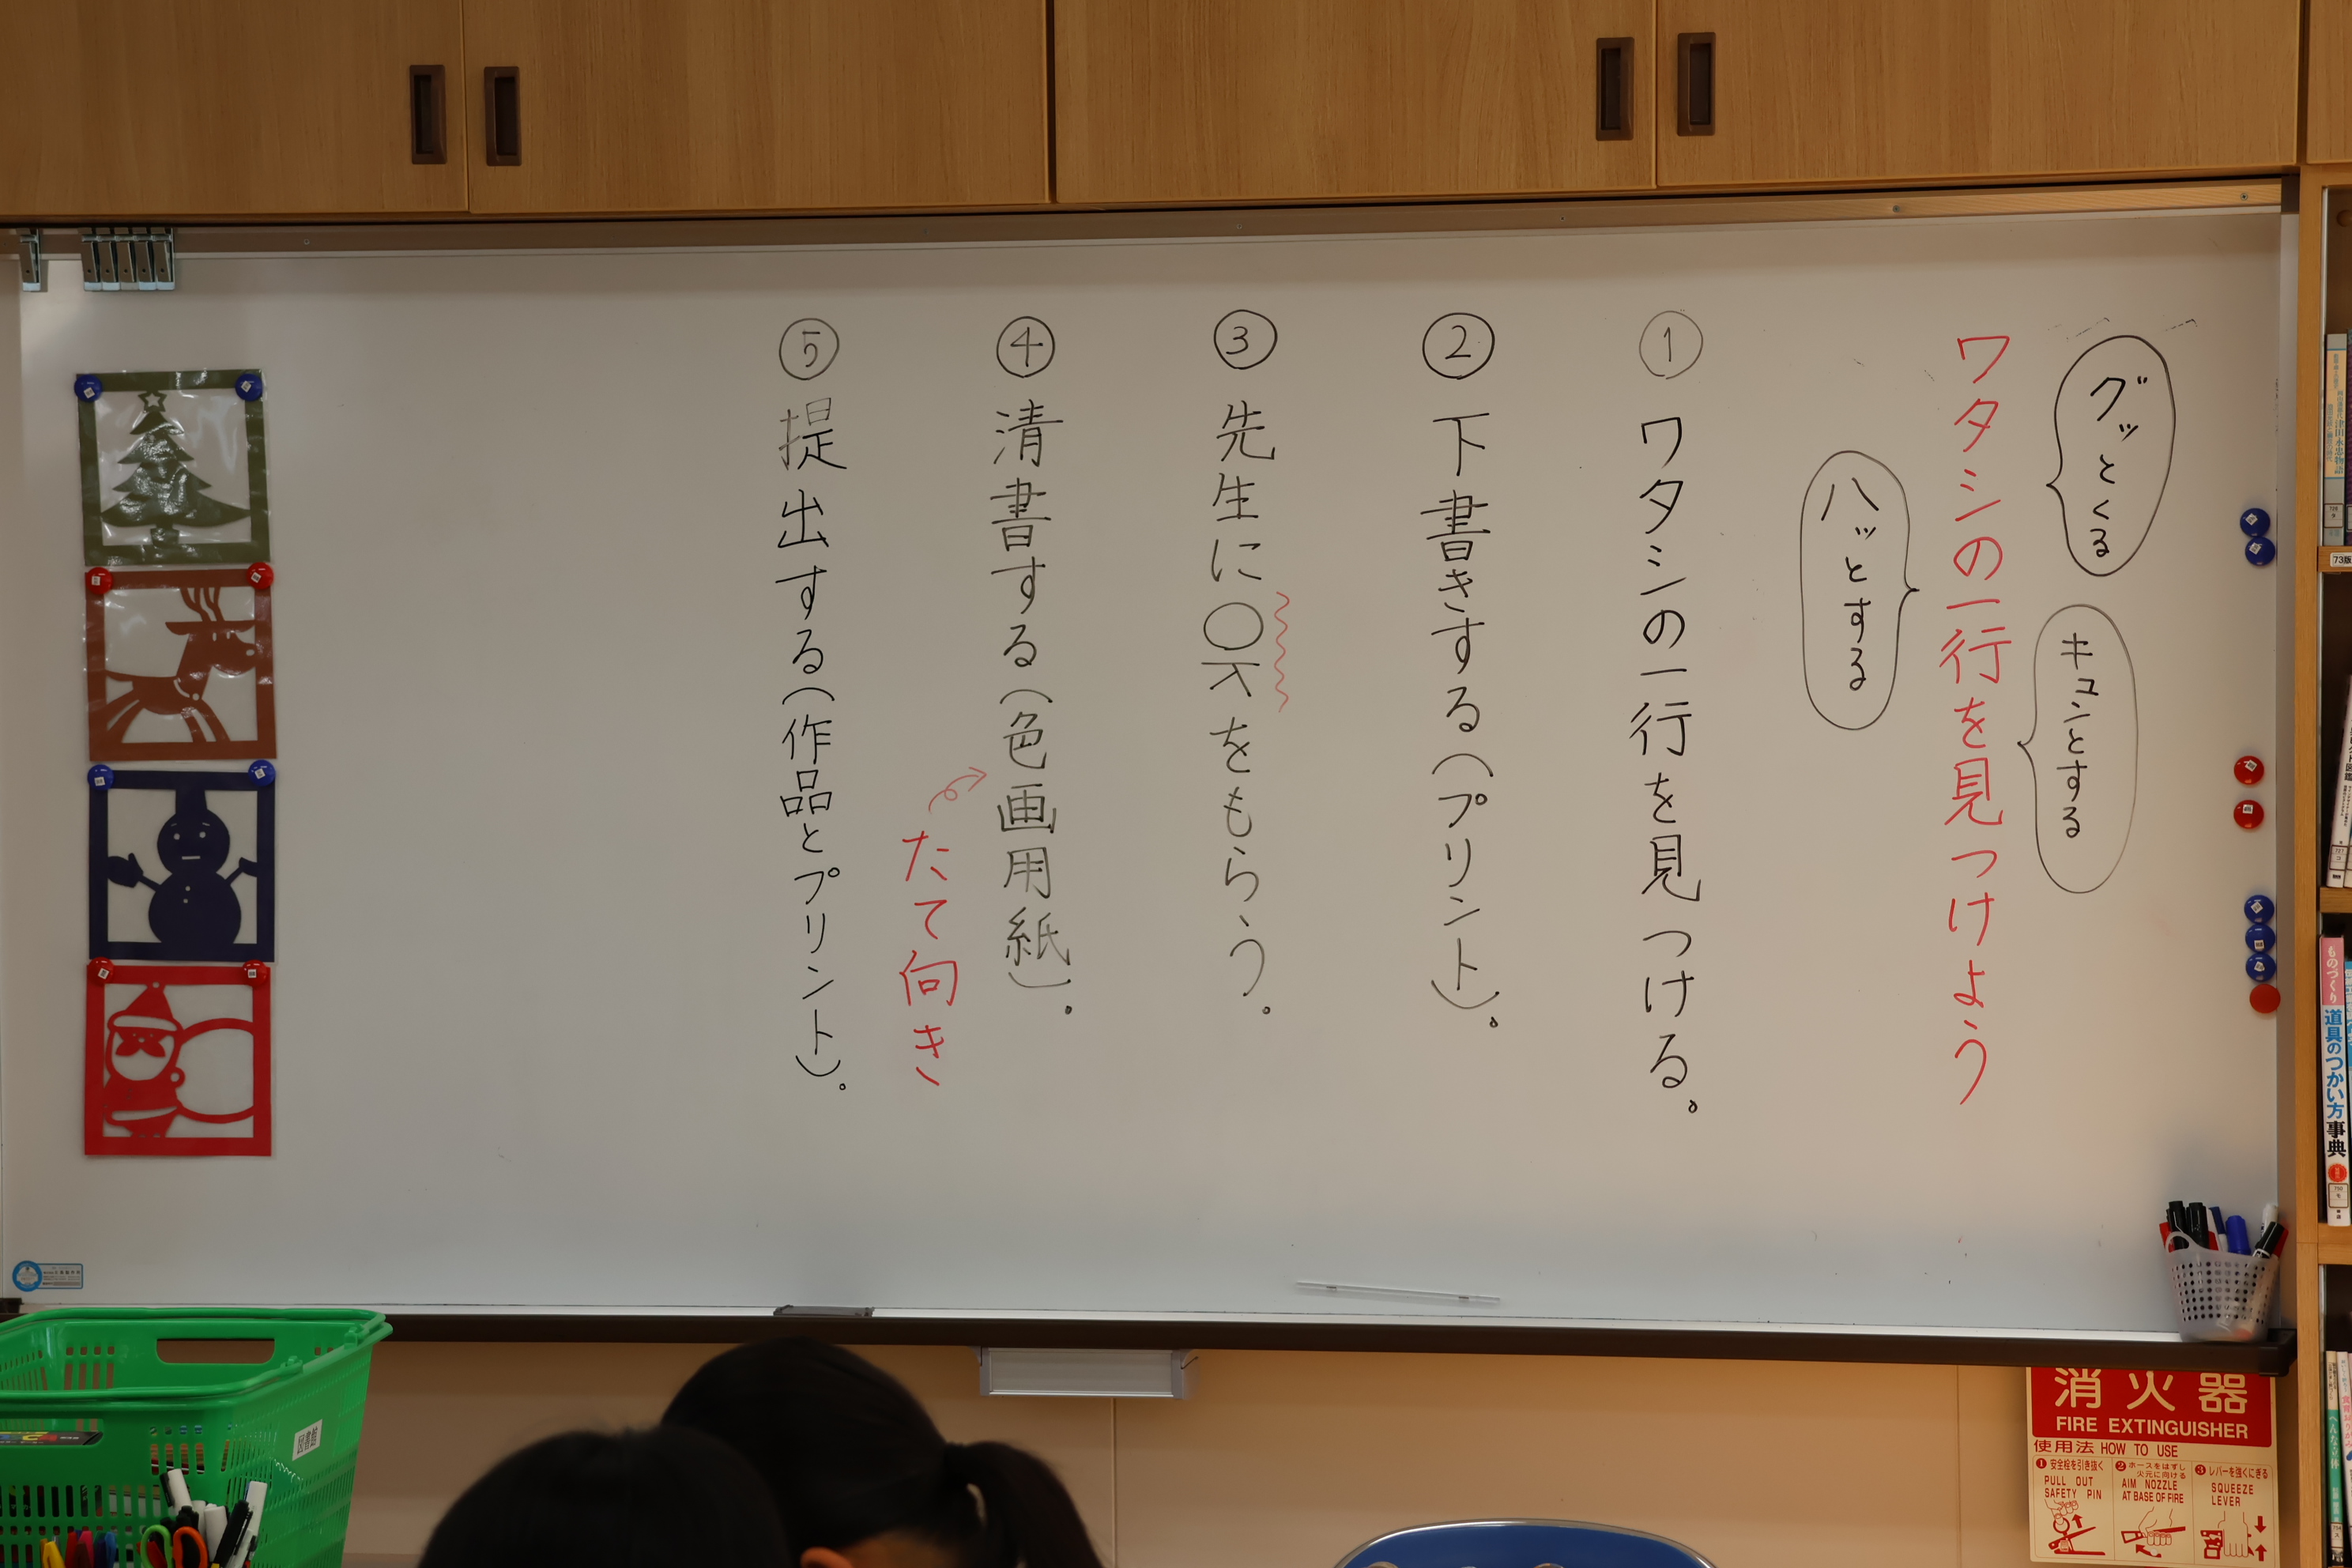 グッとくる
キュンとする
ワタシの一行を見つけよう
ハッとする
① ワタシの一行を見つける。
② 下書きする(プリント)。
③ 先生にOKをもらう。
④ 清書する(色画用紙)。
たて向き
⑤ 提出する(作品とプリント)。
ものづくり
道具のつかい方事典
消火器
FIRE EXTINGUISHER
使用法 HOW TO USE
❶安全栓を引き抜く
PULL OUT
SAFETY PIN
❷ホースをはずし
火元に向ける
AIM NOZZLE
AT BASE OF FIRE
❸レバーを強くにぎる
SQUEEZE
LEVER